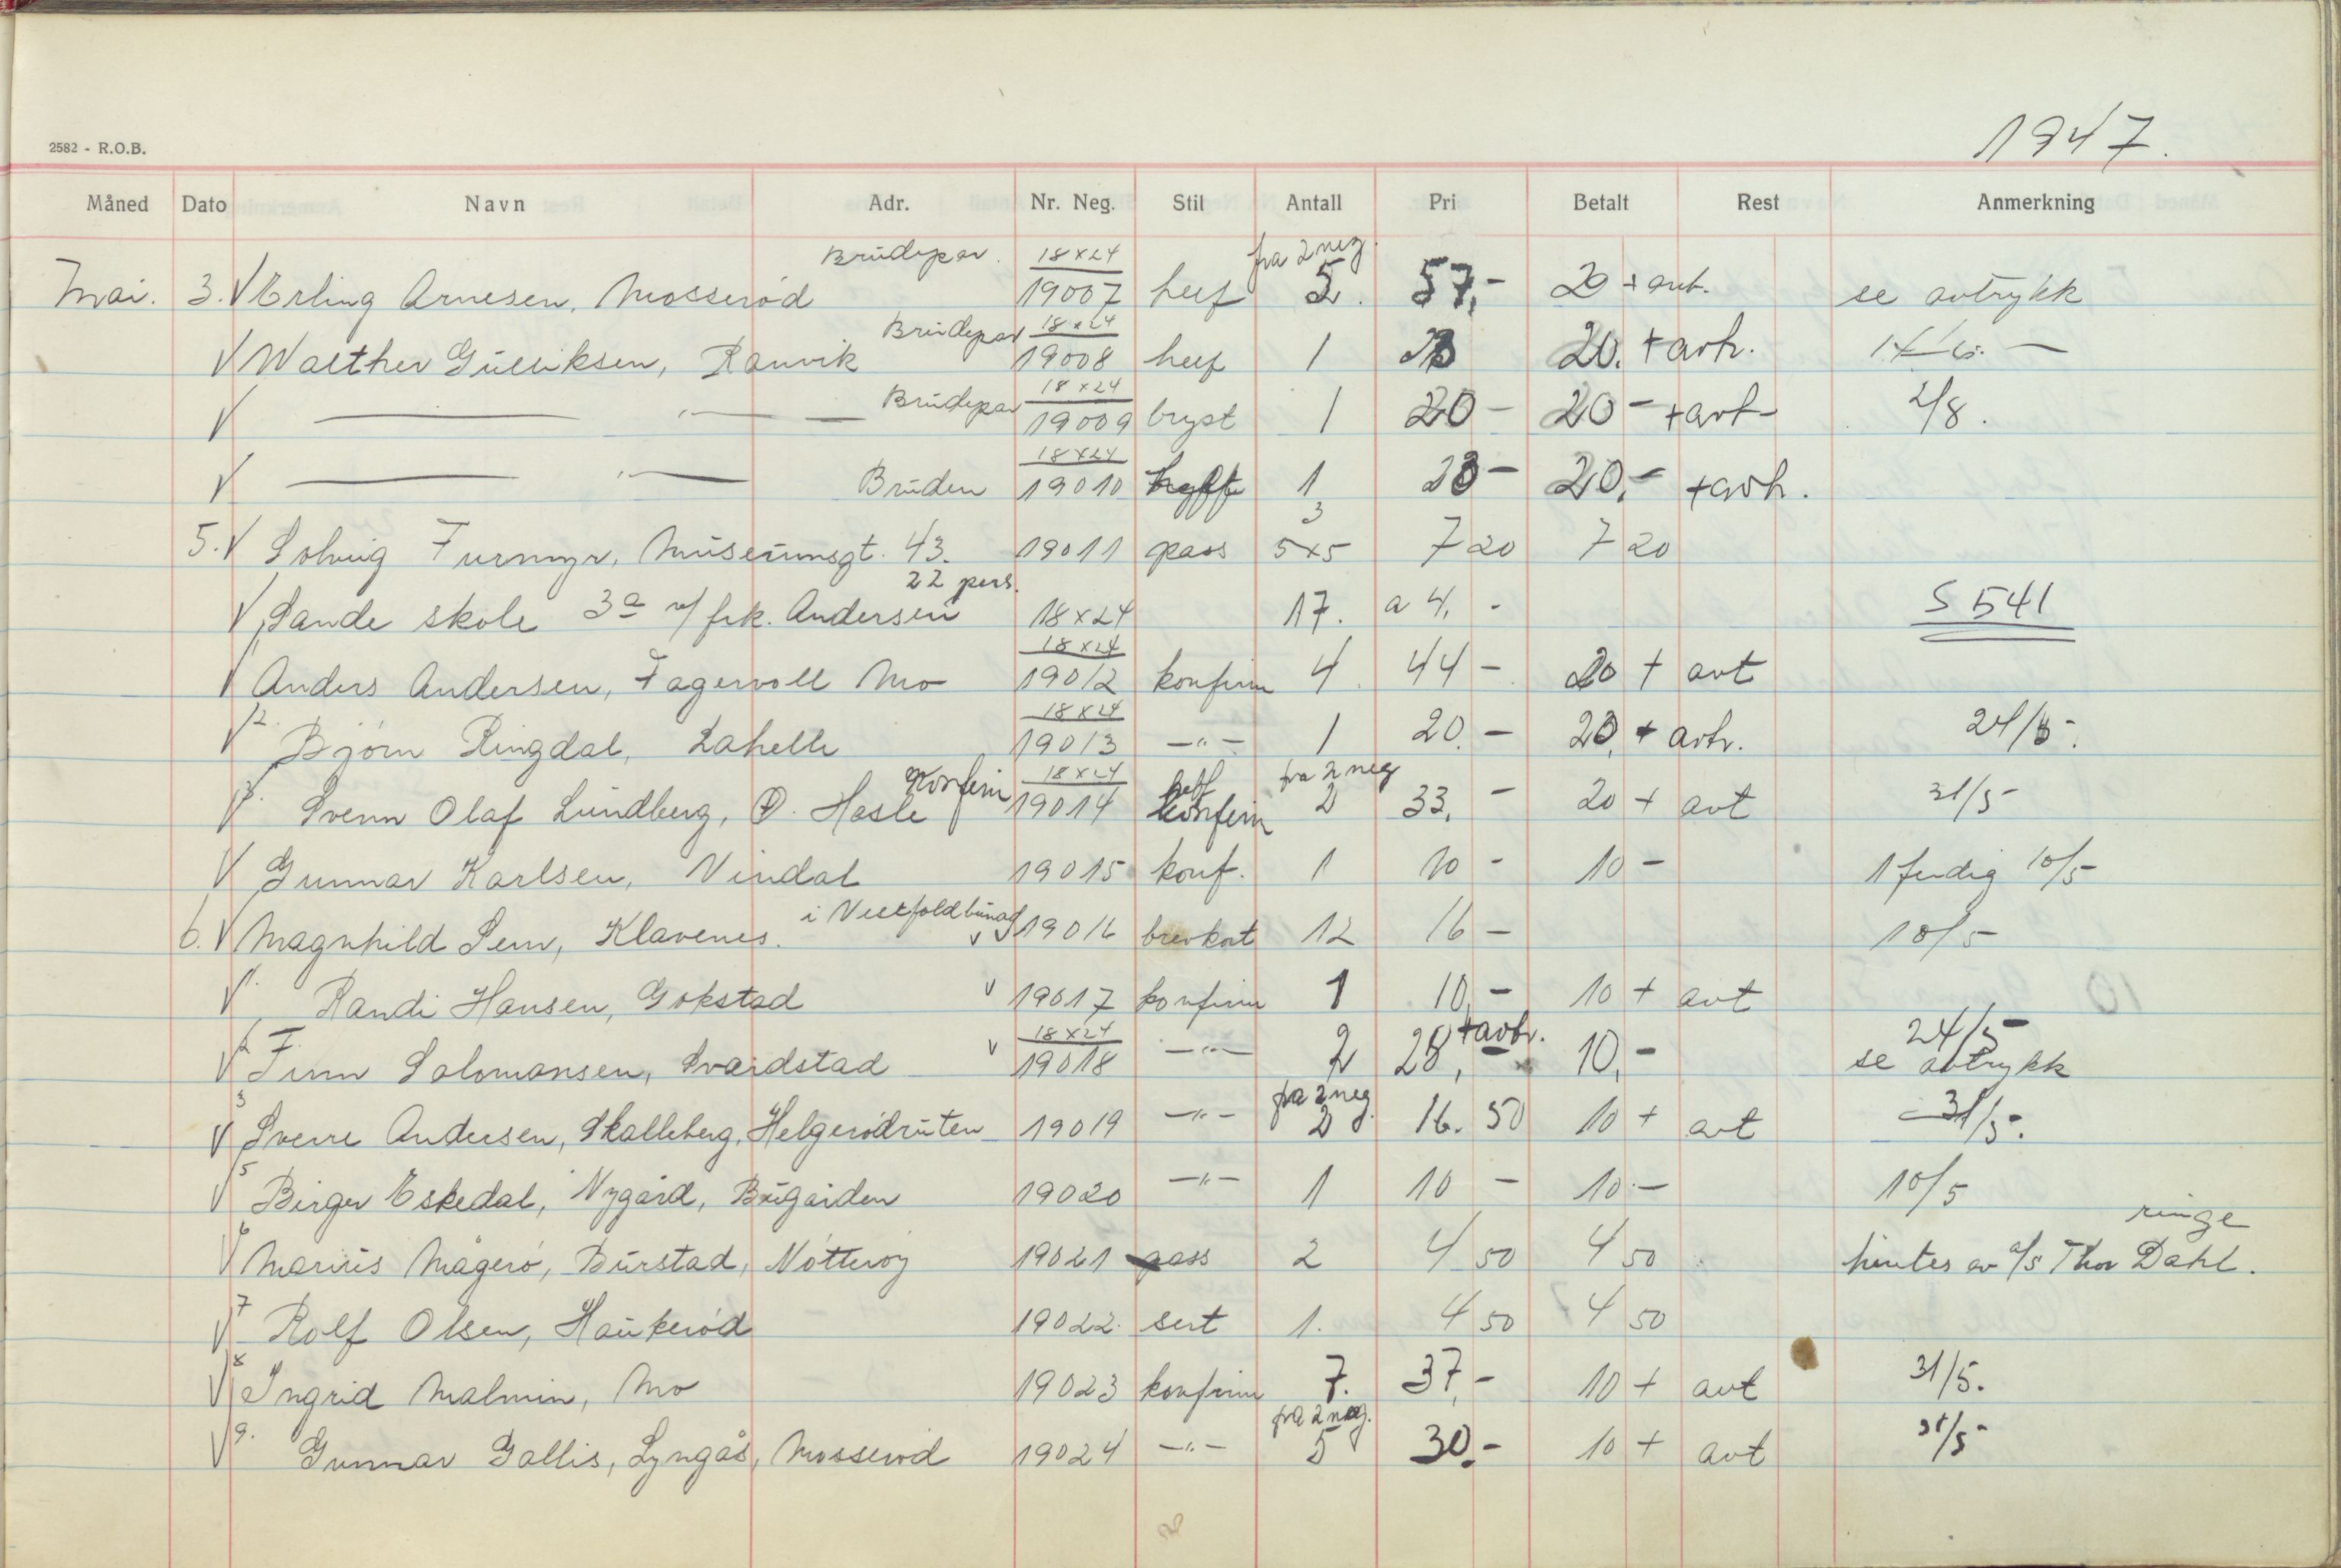 1947.
2582 - R.O.B.
Måned Dato Navn Adr. Nr. Neg. Stil Antall Pri Betalt Rest Anmerkning
Mai. 3. V Erling Arnesen, Mosserød Brudepar. 18x24 19007 helf fra 2 neg. 5. 57,- 20 + avt. se avtrykk
V Walther Gulliksen, Ranvik Brudepar 18x24 19008 helf 1 20. + avtr.
V — " — Brudepar 18x24 19009 bryst 1 20 - 20 - + avt 2/8.
V — " — Bruden 18x24 19010 1 20,- + avtr.
5. V Solveig Furmyr, Museumsgt. 43. 19011 pass 3 5x5 7 20 7 20
V Sande skole 3a v/ frk. Andersen 22 pers. 18x24 17. a 4,- S 541
V Anders Andersen, Fagervoll Mo 18x24 19012 konfirm 4 44 - 20 + avt
V 2. Bjørn Ringdal, Lahelle 18x24 19013 -"- 1 20.- 20, + avtr. 24/5-.
V 3. Svenn Olaf Lundberg, Ø. Hasle Konfirm 18x24 19014 helf konfirm fra 2 neg 2 33,- 20 + avt 31/5-
V Gunnar Karlsen, Vindal 19015 konf. 1 10 - 10 - 1 ferdig 10/5-
6. V Magnhild Sem, Klavenes. i Vestfoldbunad 19016 brevkort 12 16 - 10/5-
V Randi Hansen, Gokstad V 19017 konfirm 1 10,- 10 + avt
V 2 Finn Salomansen, Svardstad V 18x24 19018 -"- 2 28,- + avtr. 10,- 24/5- se avtrykk
V 3 Sverre Andersen, Skalleberg, Helgerødruten 19019 -"- fra 2 neg. 2 16. 50 10 + avt 31/5-.
V 5 Birger Eskedal, Nygård, Bugården 19020 -"- 1 10 - 10.- 10/5
V 6 Marius Magerø, Burstad, Nøtterøy 19021 pass 2 4 50 4 50 ringe
hentes av A/S Thor Dahl.
V 7 Rolf Olsen, Haukerød 19022 sert 1. 4 50 4 50
V 8 Ingrid Malmin, Mo 19023 konfirm 7. 37,- 10 + avt 31/5.
V 9. Gunnar Gallis, Lyngås, Mosserød 19024 -"- fra 2 neg. 5 30.- 10 + avt 31/5-